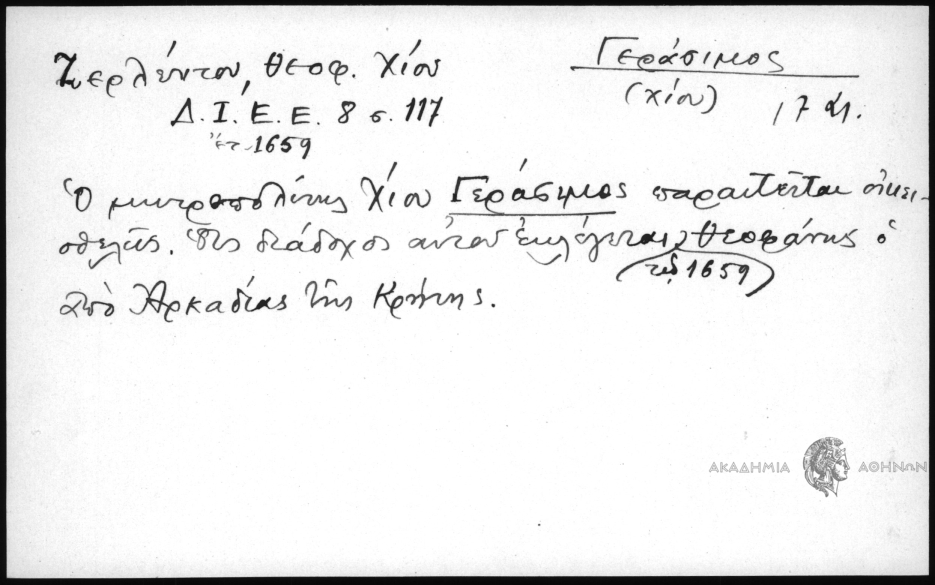 Ζερλέντου, Θεοφ. Χίου
Γεράσιμος
(Χίου) 17 αἰ.
Δ. Ι. Ε. Ε. 8 σ. 117
ἔτ. 1659
Ὁ μητροπολίτης Χίου Γεράσιμος παραιτεῖται οἰκει-
οθελῶς. Ὡς διάδοχος αὐτοῦ ἐκλέγεται Θεοφάνης ὁ
τῷ 1659
ἀπὸ Ἀρκαδίας τῆς Κρήτης.
ΑΚΑΔΗΜΙΑ ΑΘΗΝΩΝ